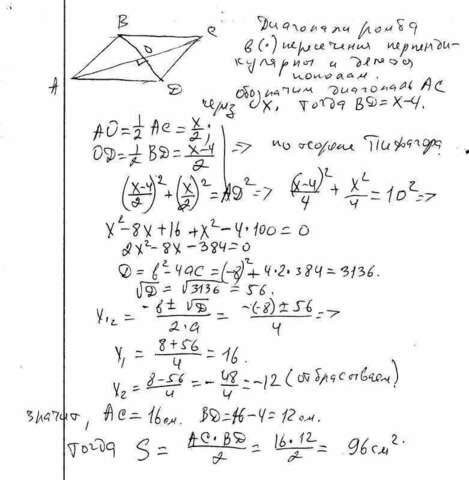 B
C
O
A
D
Диагонали ромба
в (•) пересечения перпенди-
кулярны и делятся
пополам.
обозначим диагональ AC
через X. Тогда BD = X-4.
AO = 1/2 AC = X/2;
OD = 1/2 BD = (X-4)/2 => по теореме Пифагора
((X-4)/2)² + (X/2)² = AD² => (X-4)²/4 + X²/4 = 10² =>
X² - 8X + 16 + X² - 4·100 = 0
2X² - 8X - 384 = 0
D = b² - 4ac = (-8)² + 4·2·384 = 3136.
√D = √3136 = 56.
X₁,₂ = (-b ± √D)/(2·a) = (-(-8) ± 56)/4 =>
X₁ = (8+56)/4 = 16.
X₂ = (8-56)/4 = -48/4 = -12 (отбрасываем)
значит, AC = 16 см. BD = 16-4 = 12 см.
Тогда S = (AC·BD)/2 = (16·12)/2 = 96 см².